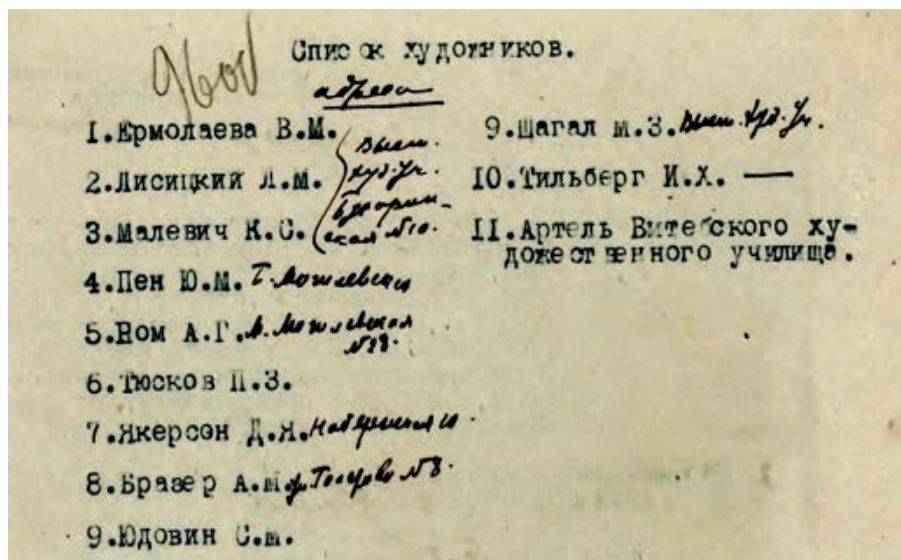 Список художников.
адреса
1.Ермолаева В.М.
2.Лисицкий Л.М.
3.Малевич К.С.
Высш.
Худ. Уч.
Бухарин-
ская №10.
4.Пен Ю.М. Б. Могилевская
5.Ром А.Г. М. Могилевская
№28.
6.Тюсков П.З.
7.Якерсон Д.Я. Набережная
8.Бразер А.М. №8.
9.Юдовин С.м.
9.Шагал м.З. Высш. Худ. Уч.
10.Тильберг И.Х. —
11.Артель Витебского ху-
дожественного училища.